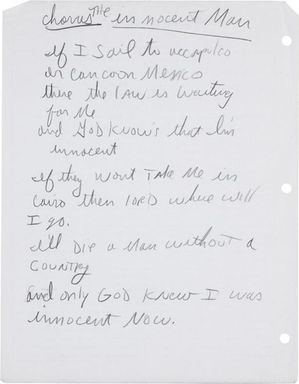 chorus the innocent Man
if I Sail to accapulco
or cancoon Mexico
there the law is waiting
for Me
and GOD Know's that I'm
innocent
if they wont Take Me in
cairo then lord where will
I go.
I'll Die a Man without a
Country
and only GOD Knew I was
innocent Now.